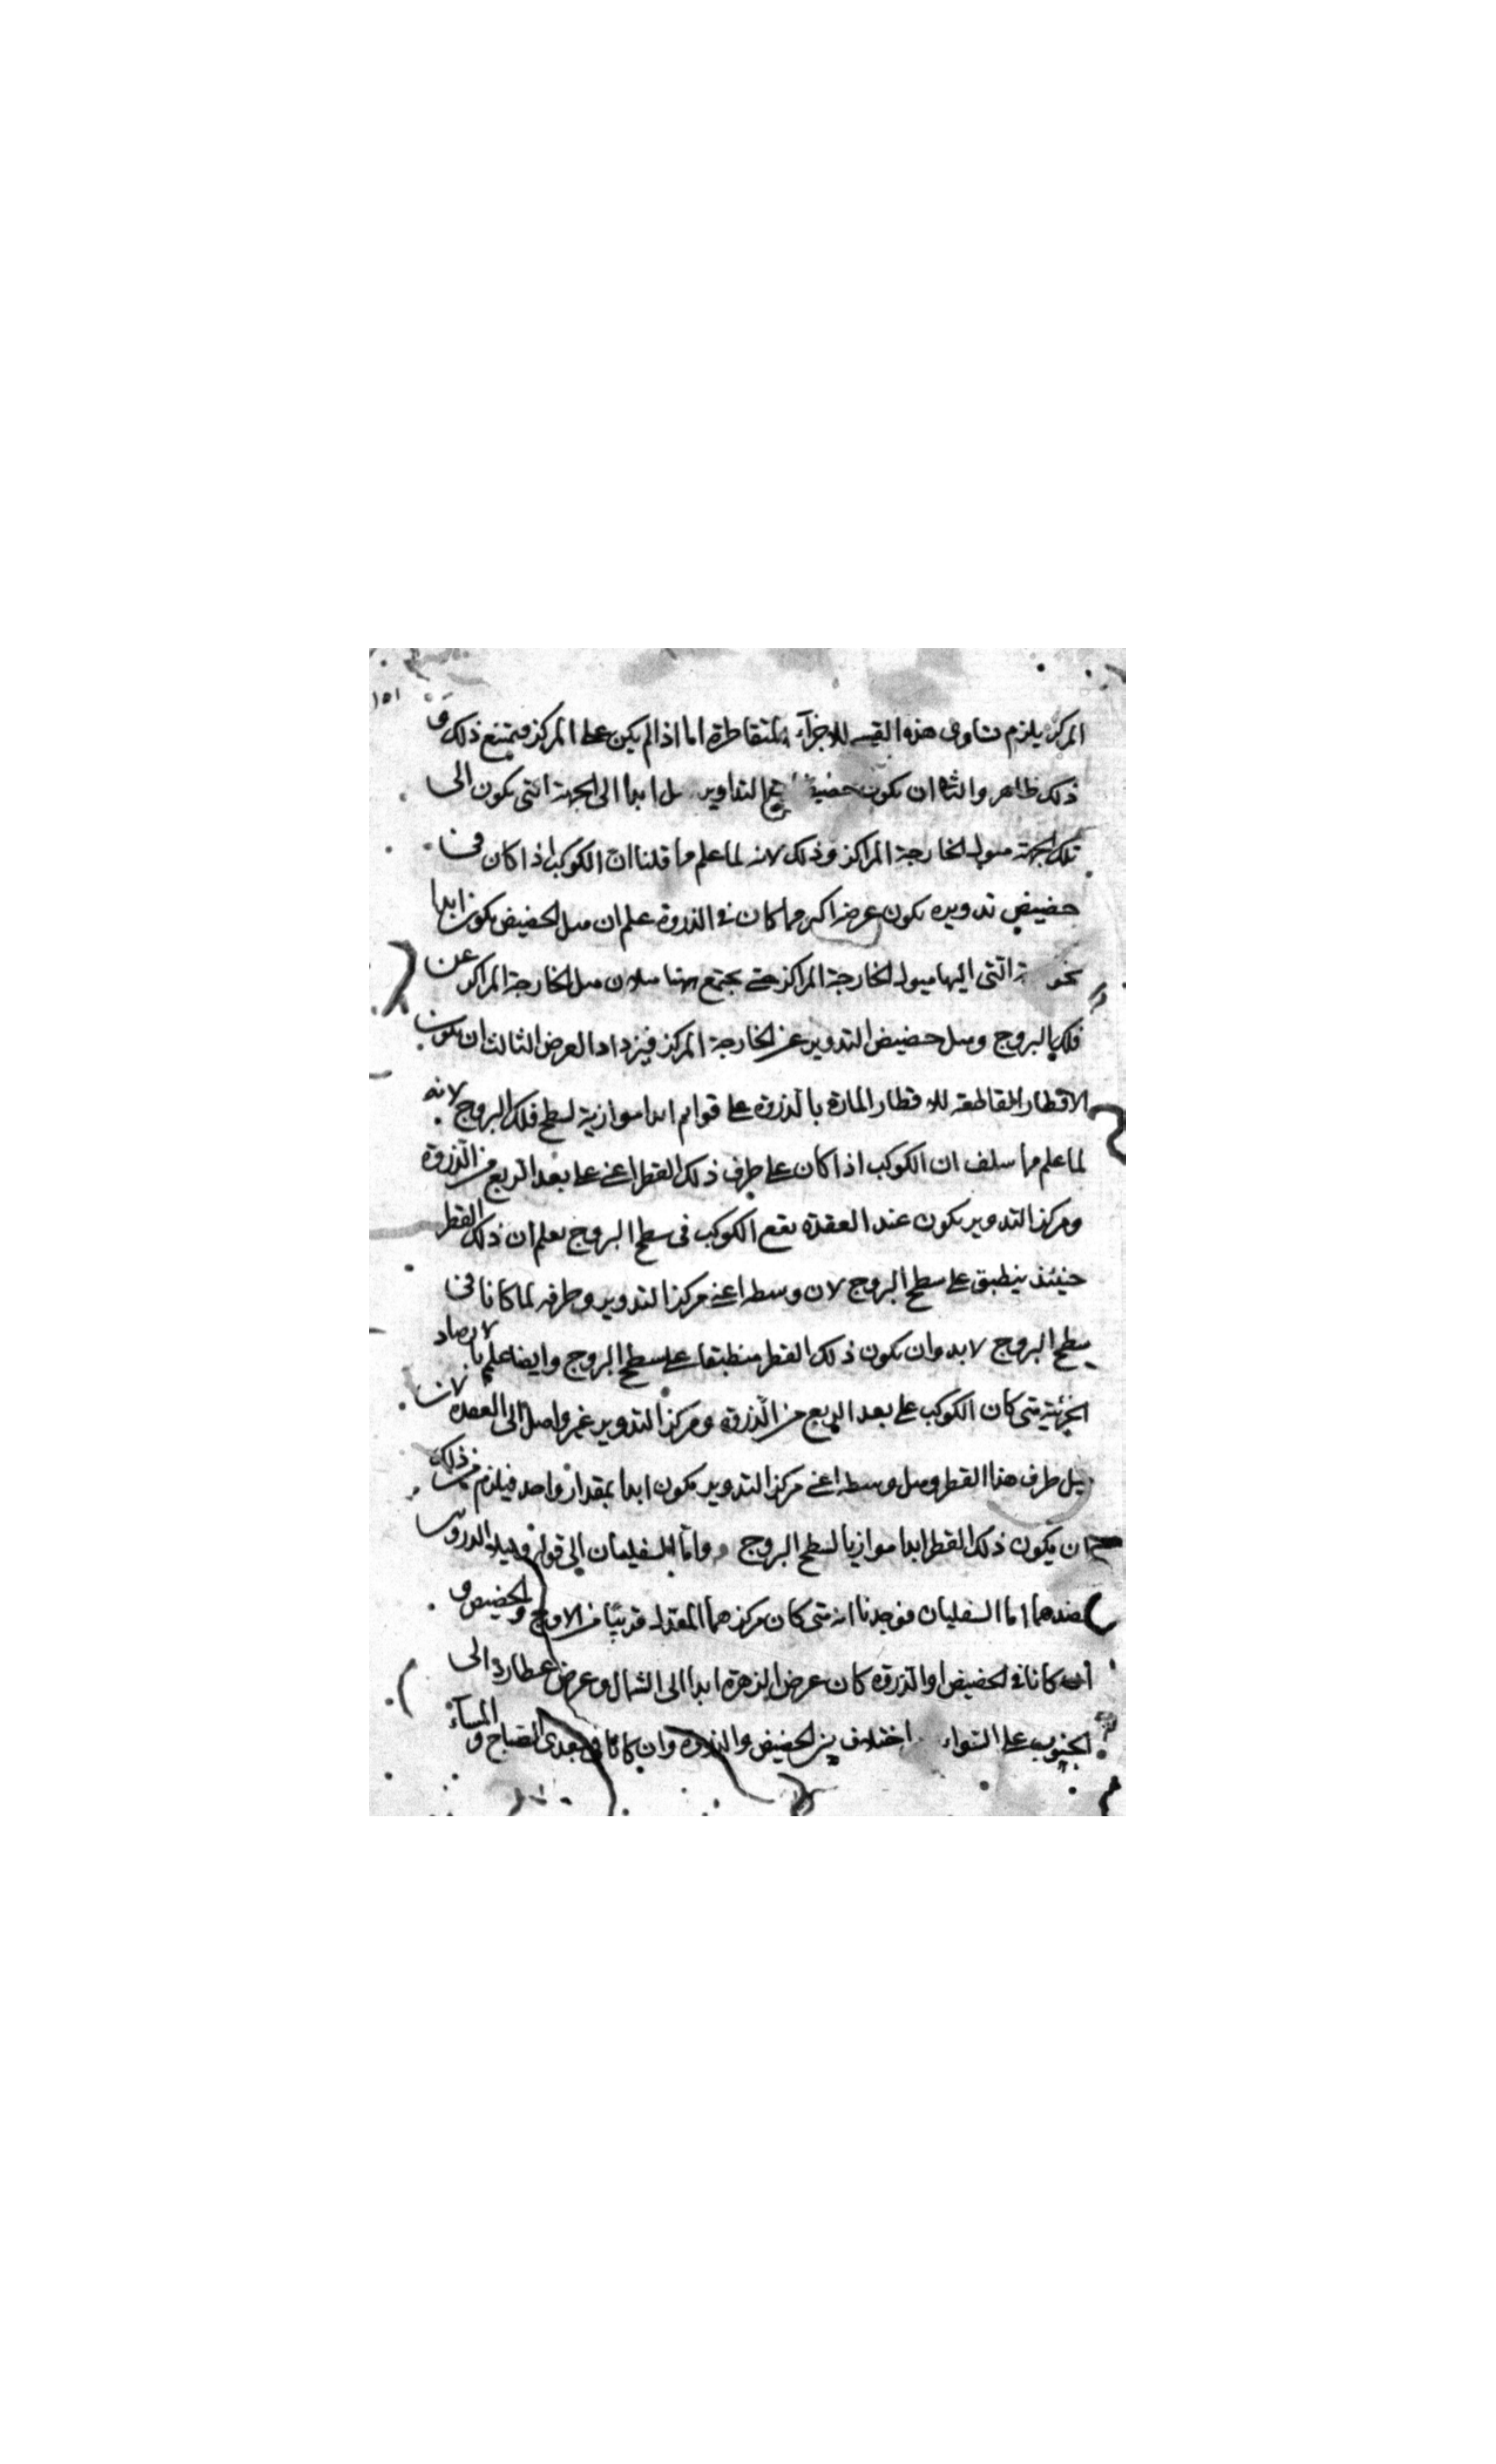 ١٥١
المركز يلزم تساوى هذه القسى للاجزآء المتقاطرة اما اذا لم يكن على المركز فيمتنع ذلك و
ذلك ظاهر والثانى ان يكون حضيض التداوير ابدا الى الجهة التى يكون الى
تلك الجهة ميول الخارجة المراكز وذلك لانه لما علم مما قلنا ان الكوكب اذا كان فى
حضيض تدويره يكون عرضه اكبر مما كان فى الذروة علم ان ميل الحضيض يكون ابدا
نحو التى اليها ميول الخارجة المراكز حتى يجتمع ميلان ميل الخارجة المراكز عن
فلك البروج وميل حضيض التدوير عن الخارجة المركز فيزداد العرض الثالث ان يكون
الاقطار المقاطعة للاقطار المارة بالذروة على قوايم ابدا موازية لسطح فلك البروج لانه
لما علم مما سلف ان الكوكب اذا كان على طرف ذلك القطر اعنى على بعد الربع من الذروة
ومركز التدوير يكون عند العقدة يقع الكوكب فى سطح البروج يعلم ان ذلك القطر
حينئذ ينطبق على سطح البروج لان وسطه اعنى مركز التدوير وطرفه لما كانا فى
سطح البروج لا بد وان يكون ذلك القطر منطبقا على سطح البروج وايضا علم بالارصاد
الجزئية متى كان الكوكب على بعد الربع من الذروة ومركز التدوير غير واصل الى العقدة لان
ميل طرف هذا القطر وميل وسطه اعنى مركز التدوير يكون ابدا بمقدار واحد فيلزم من ذلك
ان يكون ذلك القطر ابدا موازيا لسطح البروج واما السفليان الى قوله
اما السفليان فوجدنا انه متى كان مركزهما المعتدل قريبا من الاوج والحضيض و
كانا فى الحضيض او الذروة كان عرض الزهرة ابدا الى الشمال وعرض عطارد الى
الجنوب على السواء اختلاف بين الحضيض والذروة وان كانا فى بعدى الصباح و المسآء